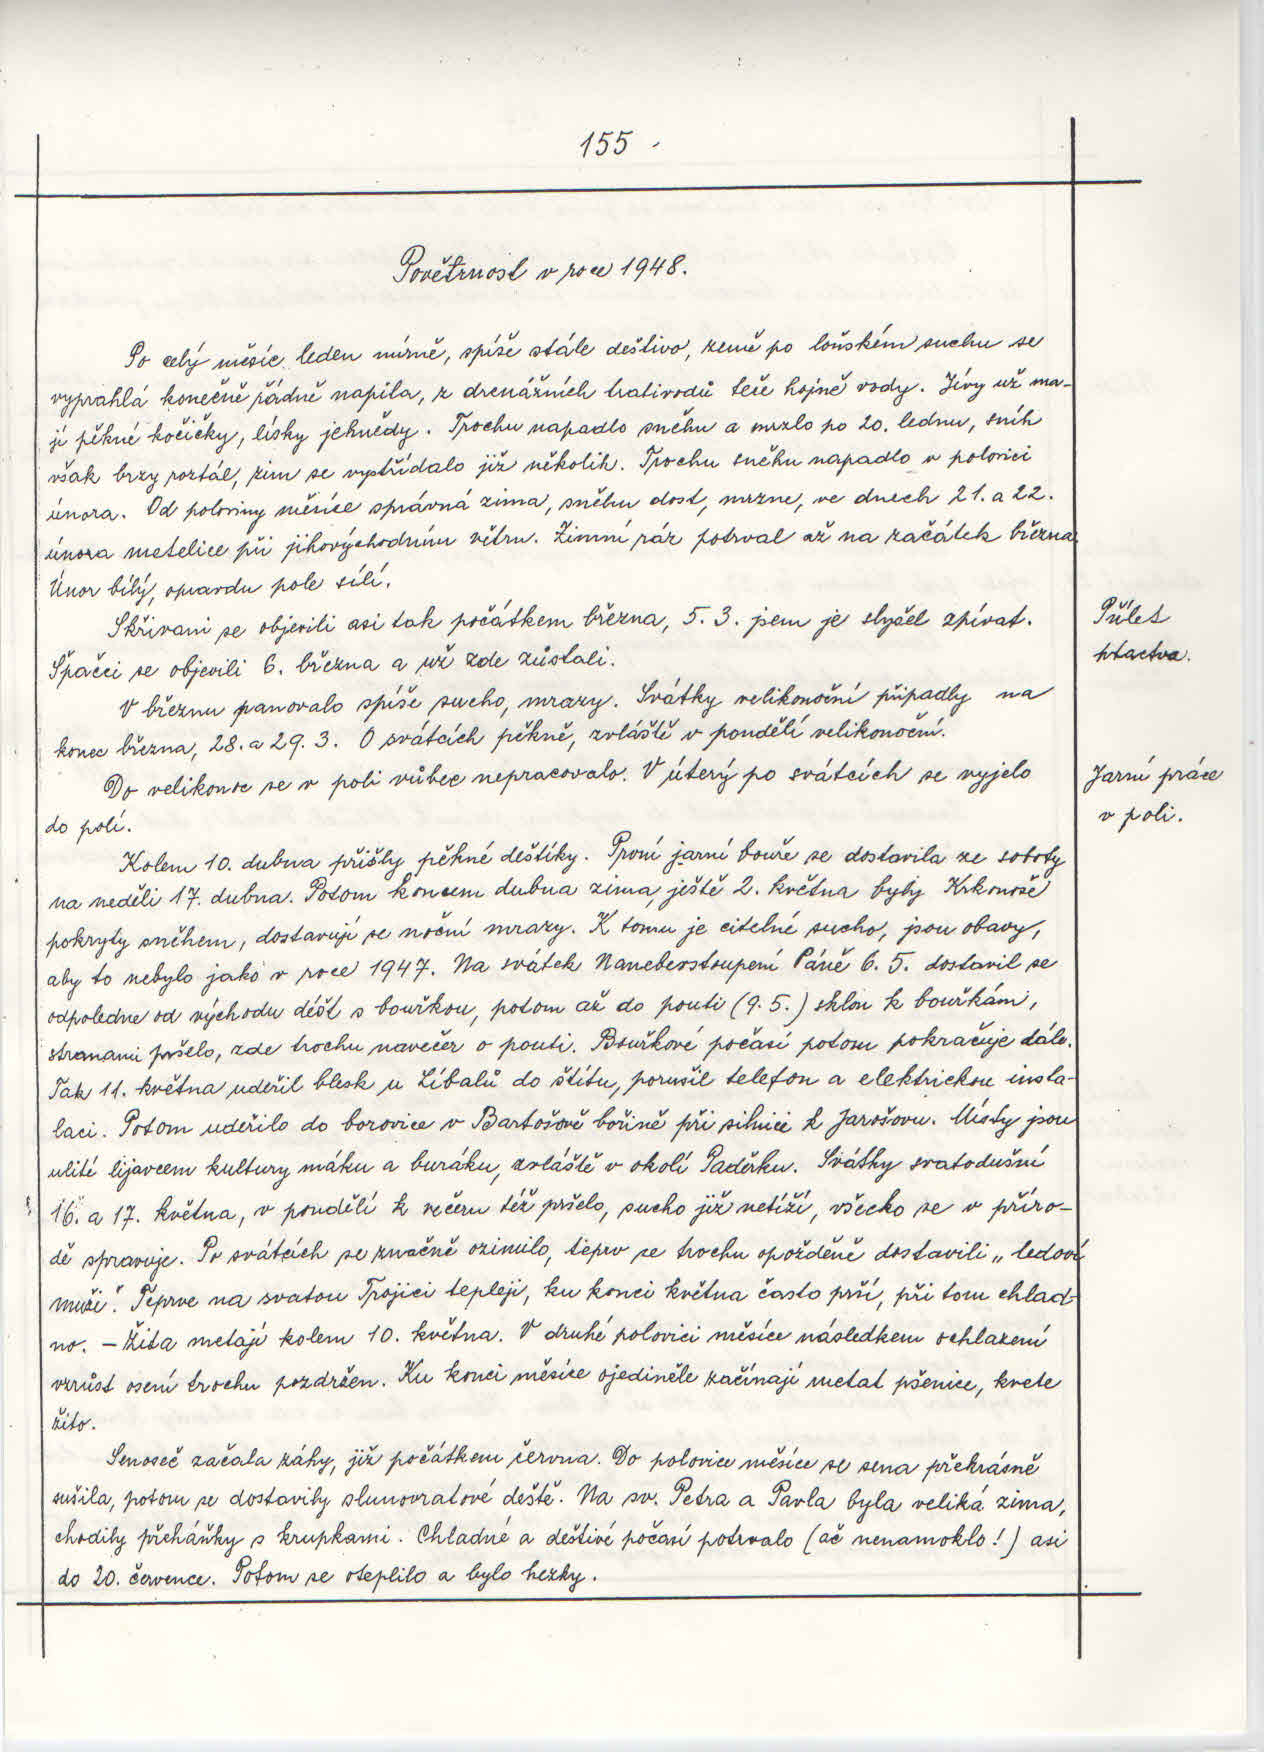 155
Povětrnost v roce 1948.
Po celý měsíc leden mírně, spíše stále deštivo, země po loňském suchu se
vyprahlá konečně řádně napila, z drenážních trativodů teče hojně vody. Jívy už ma-
jí pěkné kočičky, lísky jehnědy. Trochu napadlo sněhu a mrzlo po 20. lednu, sníh
však brzy roztál, zim se vystřídalo již několik. Trochu sněhu napadlo v polovici
února. Od poloviny měsíce správná zima, sněhu dost, mrzne, ve dnech 21. a 22.
února metelice při jihovýchodním větru. Zimní ráz potrval až na začátek března.
Únor bílý, opravdu pole sílí.
Skřivani se objevili asi tak počátkem března, 5. 3. jsem je slyšel zpívat.
Přílet
Špačci se objevili 6. března a už zde zůstali.
ptactva.
V březnu panovalo spíše sucho, mrazy. Svátky velikonoční připadly na
konec března, 28. a 29. 3. O svátcích pěkně, zvláště v pondělí velikonoční.
Do velikonoc se v poli vůbec nepracovalo. V úterý po svátcích se vyjelo
Jarní práce
do polí.
v poli.
Kolem 10. dubna přišly pěkné deštíky. První jarní bouře se dostavila ze soboty
na neděli 17. dubna. Potom koncem dubna zima, ještě 2. května byly Krkonoše
pokryty sněhem, dostavují se noční mrazy. K tomu je citelné sucho, jsou obavy,
aby to nebylo jako v roce 1947. Na svátek Nanebevstoupení Páně 6. 5. dostavil se
odpoledne od východu déšť s bouřkou, potom až do pouti (9. 5.) sklon k bouřkám,
stranami pršelo, zde trochu navečer o pouti. Bouřkové počasí potom pokračuje dále.
Tak 11. května udeřil blesk u Líbalů do štítu, porušil telefon a elektrickou insta-
laci. Potom udeřilo do borovice v Bartošově bořině při silnici k Jarošovu. Místy jsou
ulité lijavcem kultury máku a buráku, zvláště v okolí Paděrku. Svátky svatodušní
16. a 17. května, v pondělí k večeru též pršelo, sucho již netíží, všecko se v příro-
dě spravuje. Po svátcích se značně ozimilo, teprv se trochu opožděně dostavili „ledoví
muži". Teprve na svatou Trojici tepleji, ku konci května často prší, při tom chlad-
no. – Žita metají kolem 10. května. V druhé polovici měsíce následkem ochlazení
vzrůst osení trochu pozdržen. Ku konci měsíce ojediněle začínají metat pšenice, kvete
žito.
Senoseč začala záhy, již počátkem června. Do polovice měsíce se sena překrásně
sušila, potom se dostavily slunovratové deště. Na sv. Petra a Pavla byla veliká zima,
chodily přeháňky s krupkami. Chladné a deštivé počasí potrvalo (ač nenamoklo!) asi
do 20. července. Potom se oteplilo a bylo hezky.